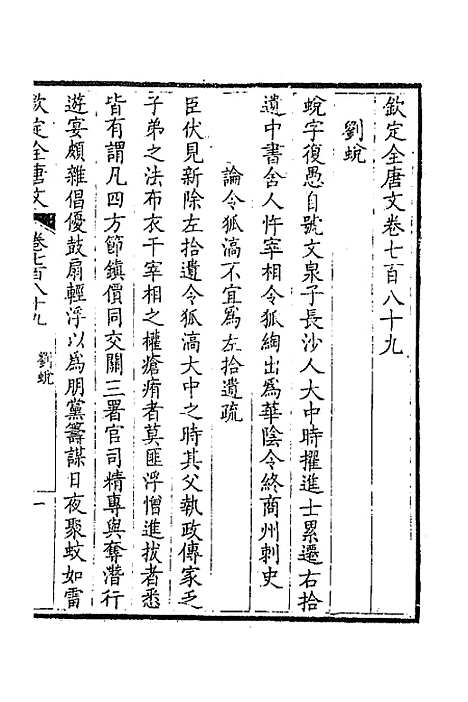 欽定全唐文卷七百八十九
劉蛻
蛻字復愚自號文泉子長沙人大中時擢進士累遷右拾
遺中書舍人忤宰相令狐綯出為華陰令終商州刺史
論令狐滈不宜為左拾遺疏
臣伏見新除左拾遺令狐滈大中之時其父執政傳家乏
子弟之法布衣干宰相之權瘡痏者莫匪浮憎進拔者悉
皆有謂凡四方節鎮價同交關三署官司精專與奪潛行
遊宴頗雜倡優鼓扇輕浮以為朋黨籌謀日夜聚蚊如雷
欽定全唐文
卷七百八十九
劉蛻
一